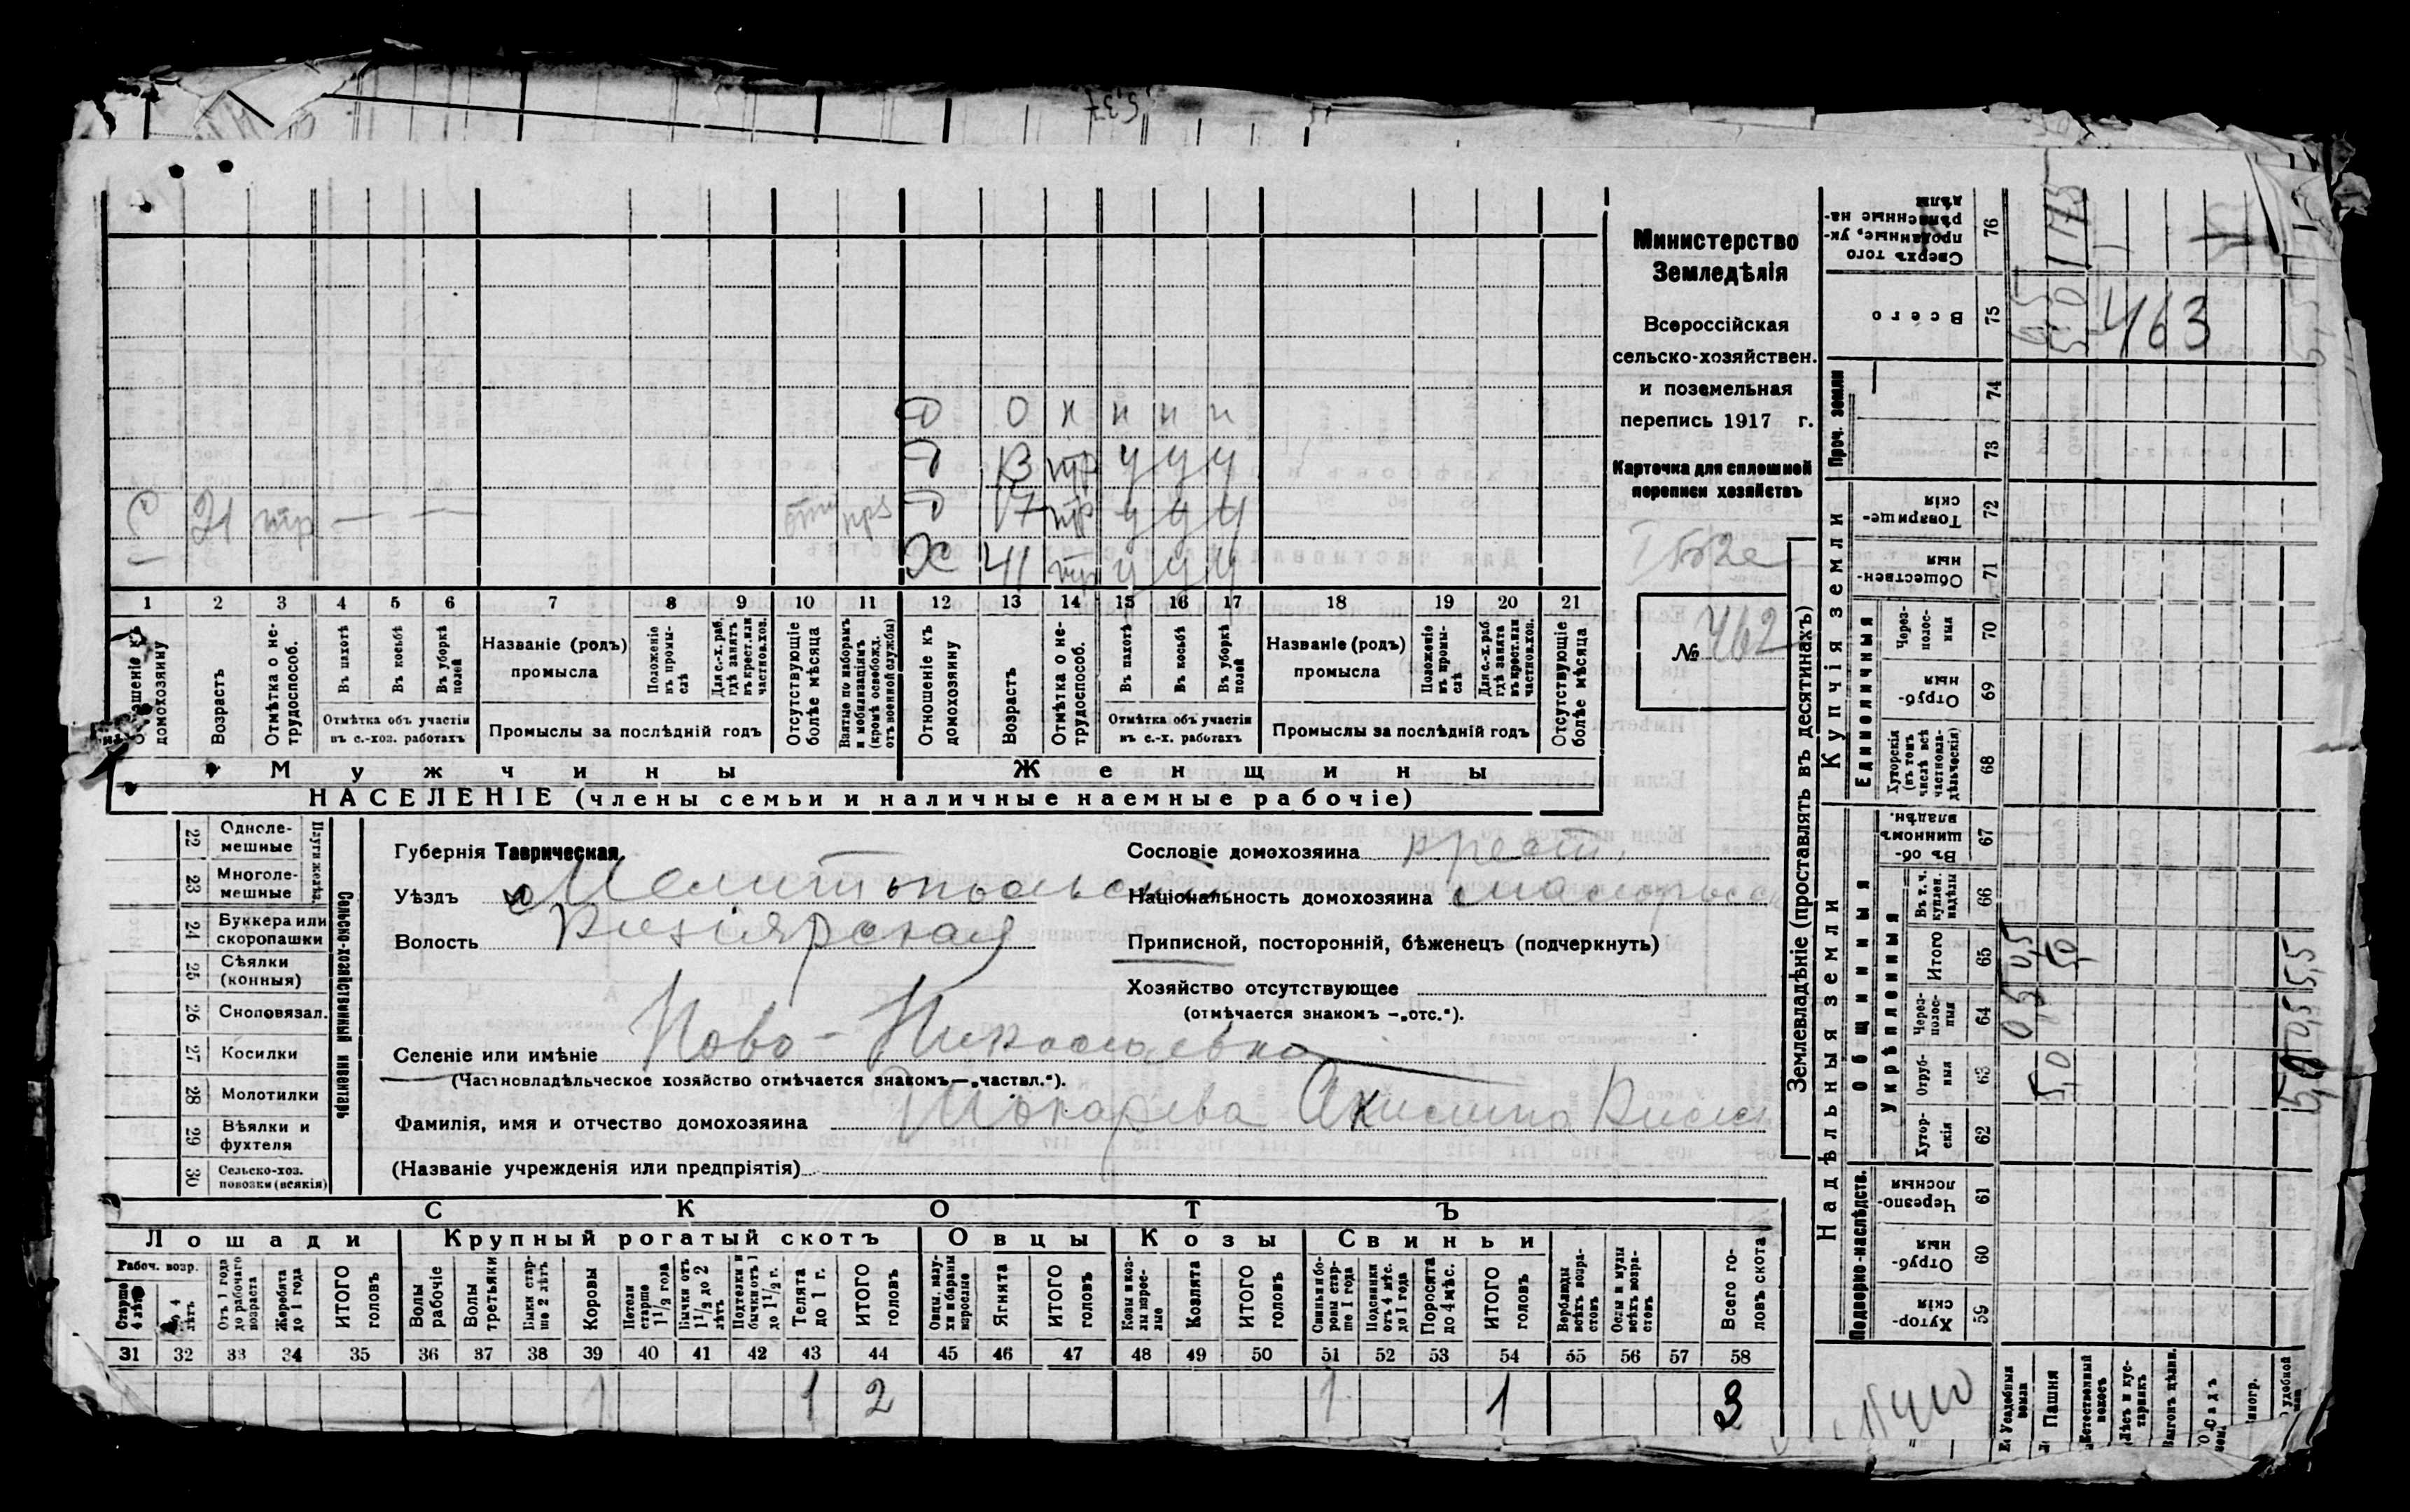 Министерство
Земледѣлія
Всероссійская
сельско-хозяйствен.
и поземельная
перепись 1917 г.
Карточка для сплошной
переписи хозяйствъ
№ 462
Д 0 н н н н
Д 13 тр у у у
С 21 тр — — Д 17 тр у у у
Х 41 тр у у у
1 2 3 4 5 6 7 8 9 10 11 12 13 14 15 16 17 18 19 20 21
домохозяину
Возрастъ
Отмѣтка о не-
трудоспособ.
Въ пахотѣ
Въ косьбѣ
Въ уборкѣ
полей
Отмѣтка объ участіи
въ с.-хоз. работахъ
Названіе (родъ)
промысла
Положеніе
въ промы-
слѣ
Для с.-х. раб.
гдѣ занятъ
въ крест. или
частнов. хоз.
Промыслы за послѣдній годъ
Отсутствующіе
болѣе мѣсяца
Взятые по наборамъ
и мобилизаціямъ
(кромѣ освобожд.
отъ военной службы)
Отношеніе къ
домохозяину
Возрастъ
Отмѣтка о не-
трудоспособ.
Въ пахотѣ
Въ косьбѣ
Въ уборкѣ
полей
Отмѣтка объ участіи
въ с.-х. работахъ
Названіе (родъ)
промысла
Положеніе
въ промы-
слѣ
Для с.-х. раб.
гдѣ занята
въ крест. или
частнов. хоз.
Промыслы за послѣдній годъ
Отсутствующіе
болѣе мѣсяца
Мужчины
Женщины
НАСЕЛЕНІЕ (члены семьи и наличные наемные рабочіе)
22 Одноле-
мешные
23 Многоле-
мешные
Плуги желѣз.
24 Буккера или
скоропашки
25 Сѣялки
(конныя)
26 Сноповязал.
27 Косилки
28 Молотилки
29 Вѣялки и
фухтеля
30 Сельско-хоз.
повозки (всякія)
Сельско-хозяйственный инвентарь
Губернія Таврическая
Уѣздъ Мелитопольскій
Волость Кизіярская
Сословіе домохозяина крест.
Національность домохозяина малоросс
Приписной, посторонній, бѣженецъ (подчеркнуть)
Хозяйство отсутствующее
(отмѣчается знакомъ —„отс.“).
Селеніе или имѣніе Ново-Николаевка
(Частновладѣльческое хозяйство отмѣчается знакомъ—„частвл.“).
Фамилія, имя и отчество домохозяина Токарева Акилина
(Названіе учрежденія или предпріятія)
СКОТЪ
Лошади
Крупный рогатый скотъ
Овцы
Козы
Свиньи
Рабоч. возр.
Старше
4 лѣтъ
До 4
лѣтъ
Отъ 1 года
до рабочаго
возраста
Жеребята
до 1 года
ИТОГО
головъ
Волы
рабочіе
Волы
третьяки
Быки стар-
ше 2 лѣтъ
Коровы
Нетели
старше
1½ года
Бычки отъ
1½ до 2
лѣтъ
Подтелки и
бычки отъ 1
до 1½ г.
Телята
до 1 г.
ИТОГО
головъ
Овцы, валу-
хи и бараны
взрослые
Ягнята
ИТОГО
головъ
Козы и коз-
лы взрос-
лые
Козлята
ИТОГО
головъ
Свиньи и бо-
ровы стар-
ше 1 года
Подсвинки
отъ 4 мѣс.
до 1 года
Поросята
до 4 мѣс.
ИТОГО
головъ
Верблюды
всѣхъ возра-
стовъ
Ослы и мулы
всѣхъ возра-
стовъ
Всего го-
ловъ скота
31 32 33 34 35 36 37 38 39 40 41 42 43 44 45 46 47 48 49 50 51 52 53 54 55 56 57 58
1 1 2 1 1 3
Землевладѣніе (проставлять въ десятинахъ)
Купчія земли
Надѣльныя земли
Проч. земли
Единоличныя
Общинныя
Укрѣпленныя
Подворно-наслѣдств.
Сверхъ того
проданные, ук-
рѣпленные на-
дѣлы
76
Всего
75
463
74
73
Товарище-
скія
72
Обществен-
ныя
71
Через-
полос-
ныя
70
Отруб-
ныя
69
Хуторскія
(въ томъ
числѣ всѣ
частновла-
дѣльческія)
68
Въ об-
щинномъ
владѣн.
67
Въ т. ч.
куплен.
надѣлы
66
Итого
65
0,5
5,0
Через-
полос-
ныя
64
0,5
Отруб-
ныя
63
5,0
Хутор-
скія
62
Черезпо-
лосныя
61
Отруб-
ныя
60
Хутор-
скія
59
Усадебныя
земли
Пашня
Естественный
покосъ
Лѣсъ и кус-
тарникъ
Выгонъ
Садъ